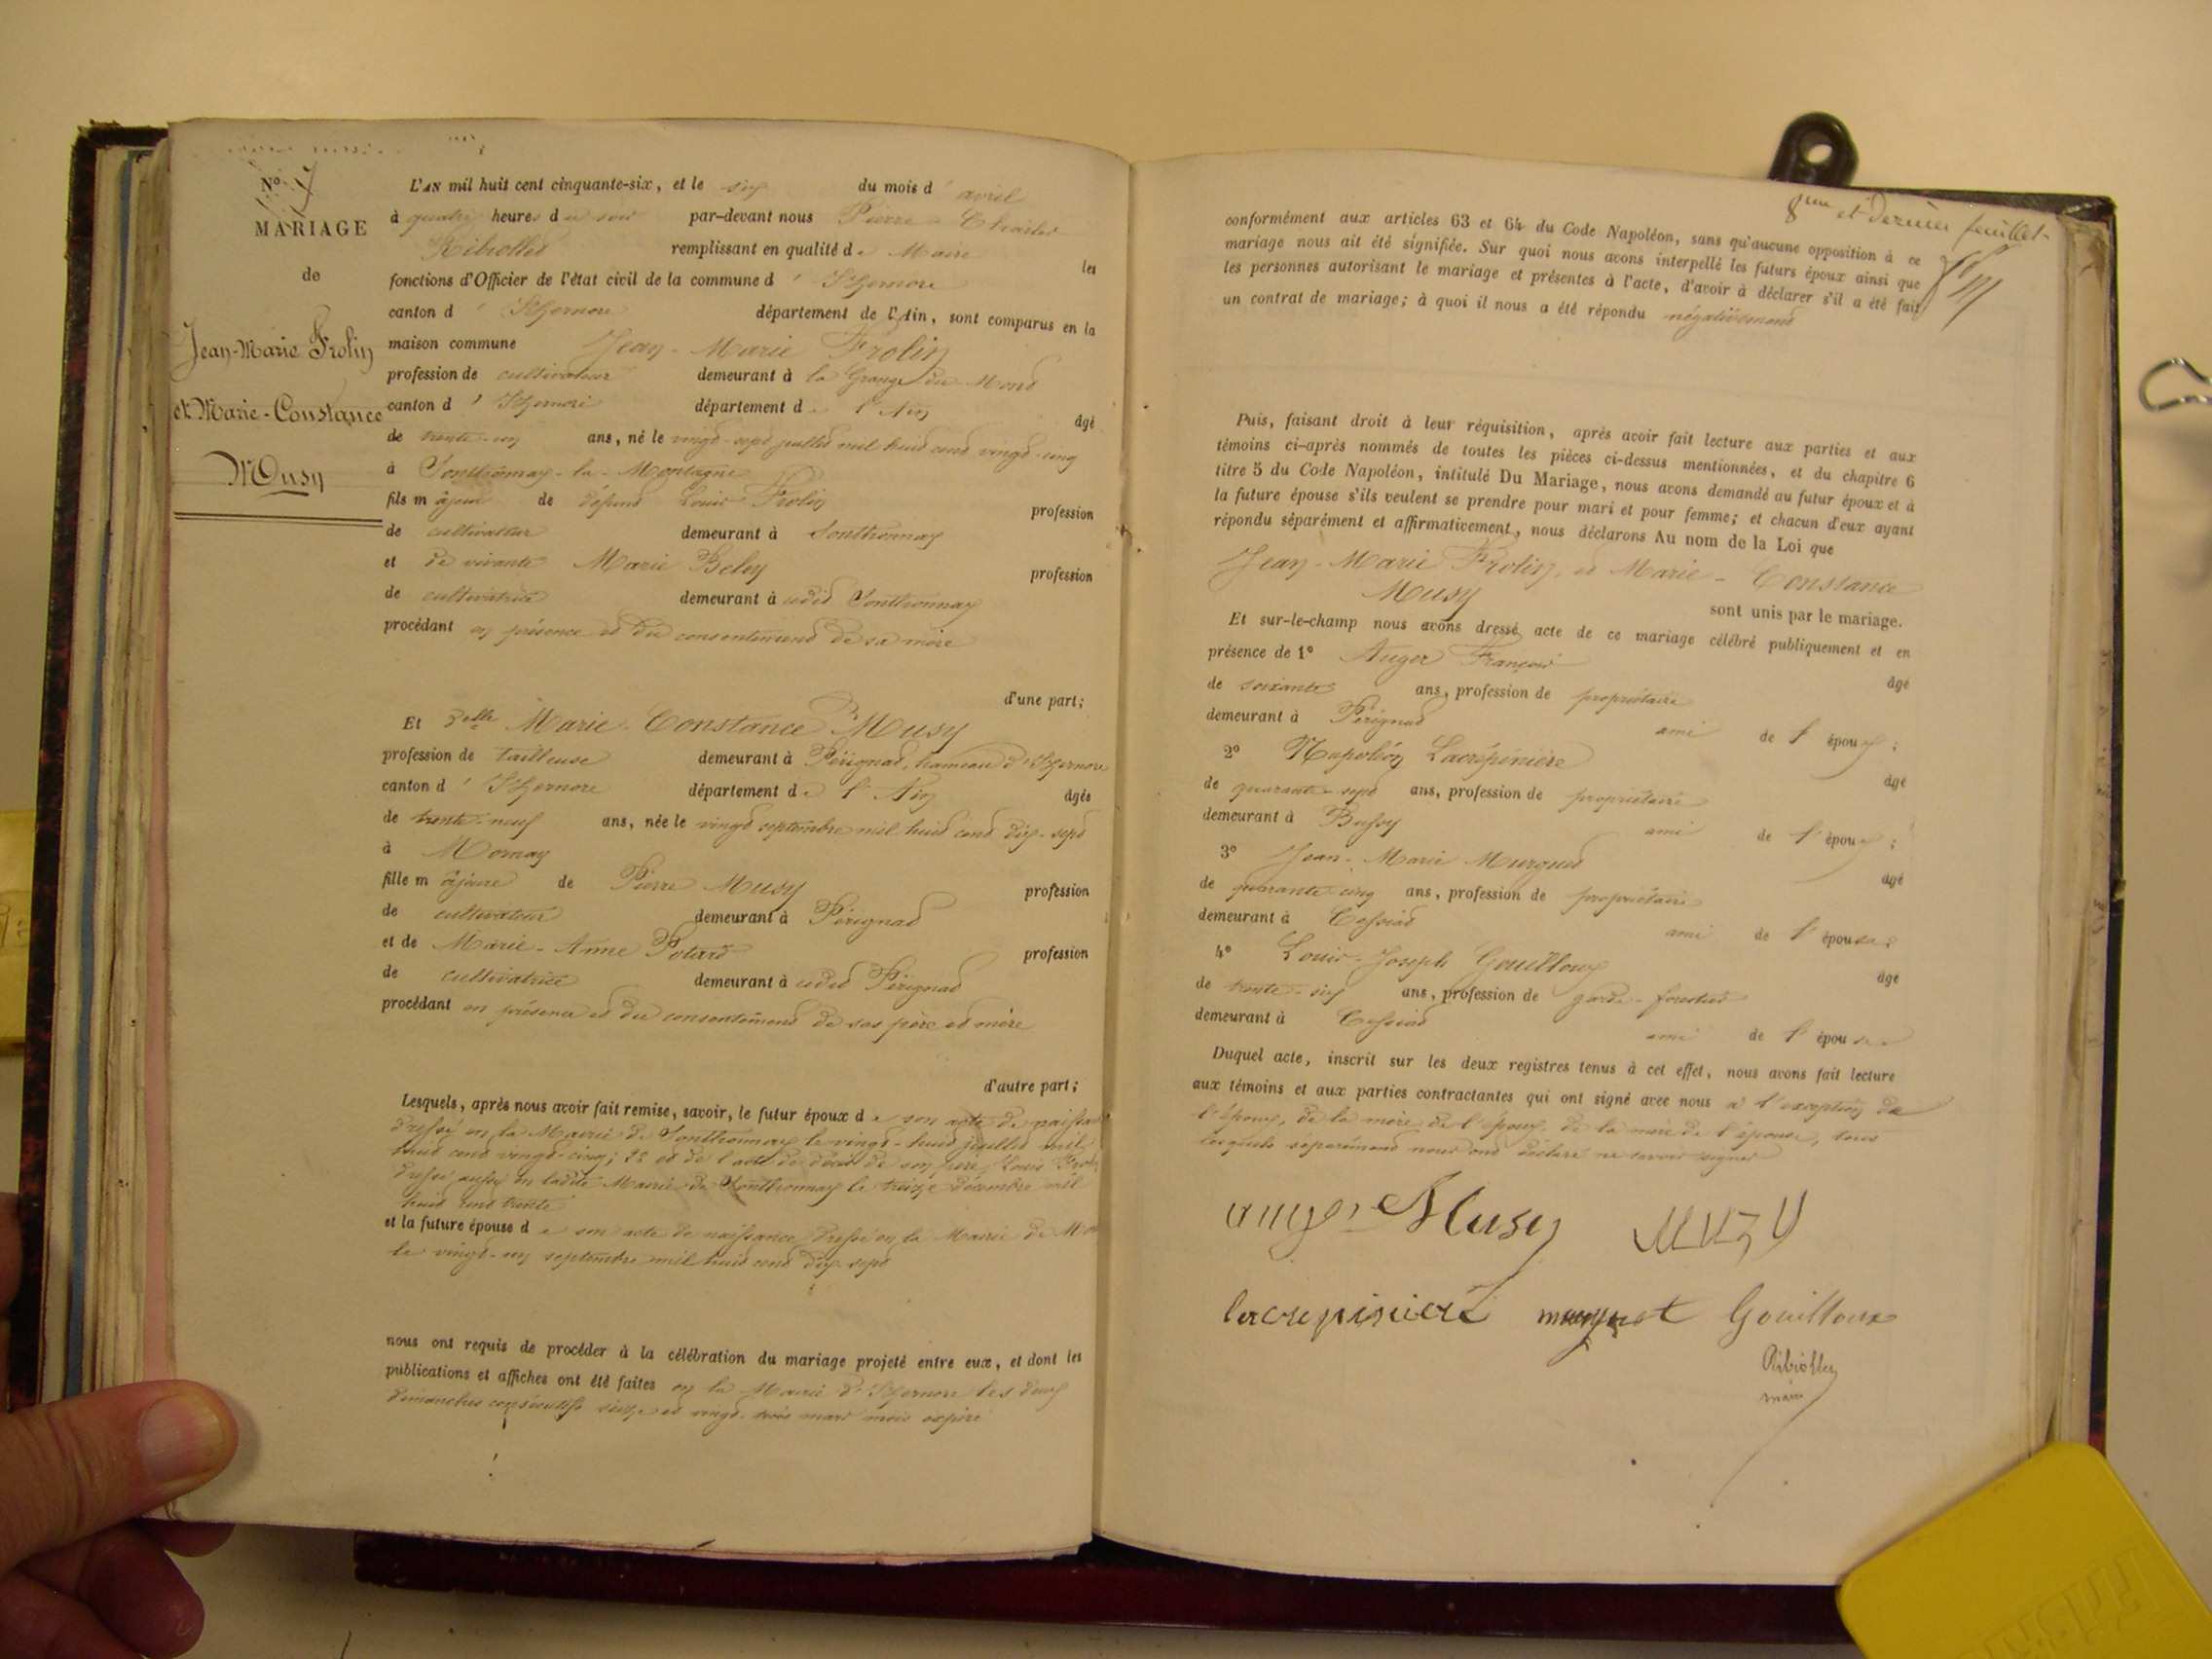 No 7
MARIAGE
de
Jean-Marie Frolin
et Marie-Constance
Musy
L'AN mil huit cent cinquante-six, et le six du mois d'avril
à quatre heures du soir par-devant nous Pierre-Charles
Ribollet remplissant en qualité de Maire les
fonctions d'Officier de l'état civil de la commune d'Izernore
canton d'Izernore département de l'Ain, sont comparus en la
maison commune Jean-Marie Frolin
profession de cultivateur demeurant à la Grange du Mont
canton d'Izernore département de l'Ain âgé
de trente-un ans, né le vingt-sept juillet mil huit cent vingt-cinq
à Sonthonnax-la-Montagne
fils majeur de défunt Louis Frolin profession
de cultivateur demeurant à Sonthonnax
et de vivante Marie Beley profession
de cultivatrice demeurant à udit Sonthonnax
procédant en présence et du consentement de sa mère
d'une part;
Et Delle Marie-Constance Musy
profession de tailleuse demeurant à Pérignat, hameau d'Izernore
canton d'Izernore département de l'Ain âgée
de trente-neuf ans, née le vingt septembre mil huit cent dix-sept
à Mornay
fille majeure de Pierre Musy profession
de cultivateur demeurant à Pérignat
et de Marie-Anne Potard profession
de cultivatrice demeurant à udit Pérignat
procédant en présence et du consentement de ses père et mère
d'autre part;
Lesquels, après nous avoir fait remise, savoir, le futur époux de son acte de naissance
dressé en la Mairie de Sonthonnax le vingt-huit juillet mil
huit cent vingt-cinq; 2° et de l'acte de décès de son père, Louis Frolin
dressé aussi en ladite Mairie de Sonthonnax le treize décembre mil
huit cent trente
et la future épouse de son acte de naissance dressé en la Mairie de
le vingt-un septembre mil huit cent dix-sept
nous ont requis de procéder à la célébration du mariage projeté entre eux, et dont les
publications et affiches ont été faites en la Mairie d'Izernore les deux
dimanches consécutifs seize et vingt-trois mars mois expiré
8me et dernier feuillet
conformément aux articles 63 et 64 du Code Napoléon, sans qu'aucune opposition à ce
mariage nous ait été signifiée. Sur quoi nous avons interpellé les futurs époux ainsi que
les personnes autorisant le mariage et présentes à l'acte, d'avoir à déclarer s'il a été fait
un contrat de mariage; à quoi il nous a été répondu négativement
Puis, faisant droit à leur réquisition, après avoir fait lecture aux parties et aux
témoins ci-après nommés de toutes les pièces ci-dessus mentionnées, et du chapitre 6
titre 5 du Code Napoléon, intitulé Du Mariage, nous avons demandé au futur époux et à
la future épouse s'ils veulent se prendre pour mari et pour femme; et chacun d'eux ayant
répondu séparément et affirmativement, nous déclarons Au nom de la Loi que
Jean-Marie Frolin, et Marie-Constance
Musy sont unis par le mariage.
Et sur-le-champ nous avons dressé acte de ce mariage célébré publiquement et en
présence de 1° Auger François âgé
de soixante ans, profession de propriétaire
demeurant à Pérignat ami de l'époux;
2° Napoléon Lacrépinière âgé
de quarante-sept ans, profession de propriétaire
demeurant à Bussy ami de l'époux;
3° Jean-Marie Murguet âgé
de quarante-cinq ans, profession de propriétaire
demeurant à Cessiat ami de l'épouse;
4° Louis-Joseph Gouilloux âgé
de trente-six ans, profession de garde-forestier
demeurant à Cessiat ami de l'épouse
Duquel acte, inscrit sur les deux registres tenus à cet effet, nous avons fait lecture
aux témoins et aux parties contractantes qui ont signé avec nous à l'exception de
l'époux, de la mère de l'époux, de la mère de l'épouse, tous
lesquels séparément nous ont déclaré ne savoir signer
auger Musy Muzy
lacrepiniere murguet Gouilloux
Ribollet
maire